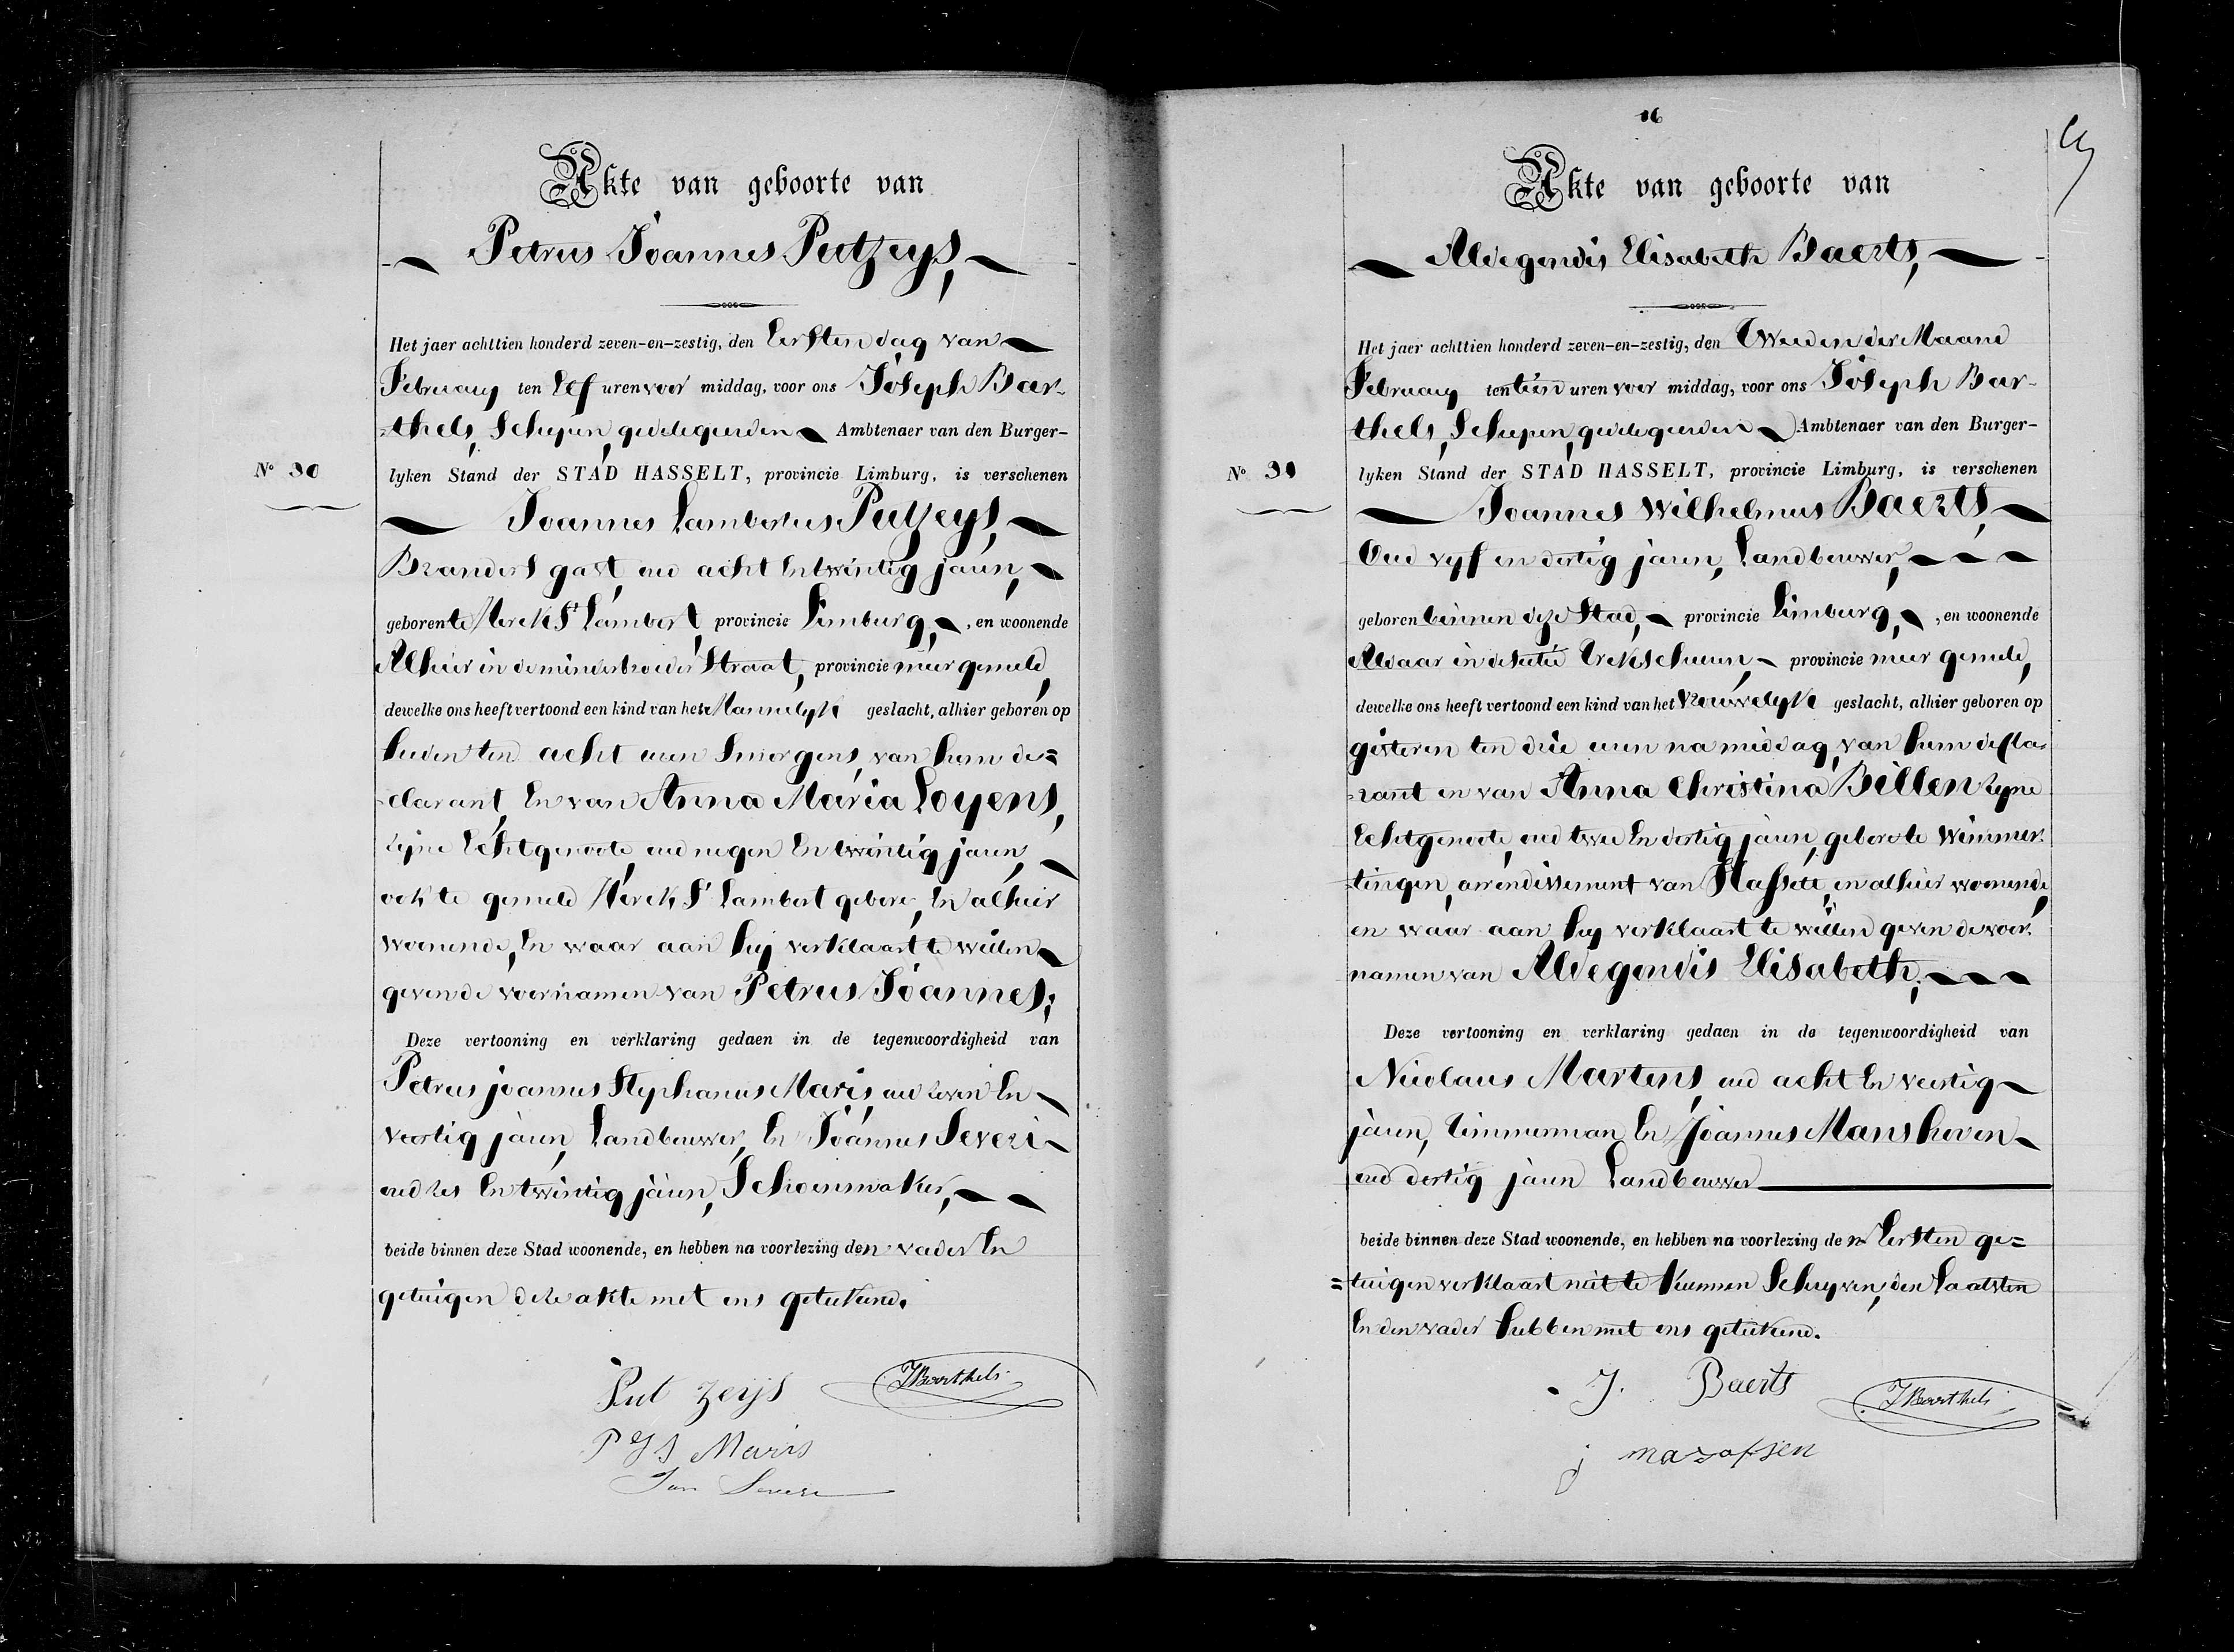 Akte van geboorte van
Petrus Joannes Putzeys,
Het jaer achttien honderd zeven-en-zestig, den Eersten dag van
February ten Elf uren voor middag, voor ons Joseph Bar-
thels, Schepen, gedelegeerden Ambtenaer van den Burger-
Nº 30
lyken Stand der STAD HASSELT, provincie Limburg, is verschenen
Joannes Lambertus Putzeys,
Branders gast, oud acht En twintig jaren,
geboren te Herck St Lambert, provincie Limburg, , en woonende
Alhier in de minderbroeder Straat, provincie meer gemeld,
dewelke ons heeft vertoond een kind van het Mannelyk geslacht, alhier geboren op
heden ten acht uren smorgens, van hem de=
clarant, En van Anna Maria Loyens,
zyne Echtgenoote, oud negen En twintig jaren,
ook te gemeld Herck St Lambert gebore, En alhier
woonende, En waar aan hy verklaart te willen
geven de voornamen van Petrus Joannes;
Deze vertooning en verklaring gedaen in de tegenwoordigheid van
Petrus joannes Stephanus Maris, oud zeven En
veertig jaren, Landbouwer, En Joannes Severi
oud zes En twintig jaren, Schoenmaker,
beide binnen deze Stad woonende, en hebben na voorlezing den vader En
getuigen deze akte met ons geteekend.
Put zeys JBarthels
P J S Maris
Jan Severi
16
Akte van geboorte van
Aldegondis Elisabeth Baerts,
Het jaer achttien honderd zeven-en-zestig, den Tweeden der Maand
February ten tien uren voor middag, voor ons Joseph Bar-
thels, Schepen, gedelegeerden Ambtenaer van den Burger-
Nº 31
lyken Stand der STAD HASSELT, provincie Limburg, is verschenen
Joannes Wilhelmus Baerts,
Oud vyf en dertig jaren, Landbouwer,
geboren binnen deze Stad, provincie Limburg, , en woonende
Aldaar in de sectie Trekschuren, provincie meer gemeld,
dewelke ons heeft vertoond een kind van het Vrouwelyk geslacht, alhier geboren op
gisteren ten drie uren na middag, van hem decla=
rant en van Anna Christina Billen zyne
Echtgenoote, oud twee En dertig jaren, gebore te Wimmer=
tingen, arrendissement van Hasselt, en alhier woonende,
en waar aan hy verklaart te willen geven de voor=
namen van Aldegondis Elisabeth;
Deze vertooning en verklaring gedaen in de tegenwoordigheid van
Nicolaus Martens, oud acht En veertig
jaren, timmerman En Joannes Manshoven
oud dertig jaren Landbouwer
beide binnen deze Stad woonende, en hebben na voorlezing den Eersten ge=
=tuigen verklaart niet te kunnen Schryven, den Laatsten
En den vader hebben met ons geteekend.
J. Baerts JBarthels
j